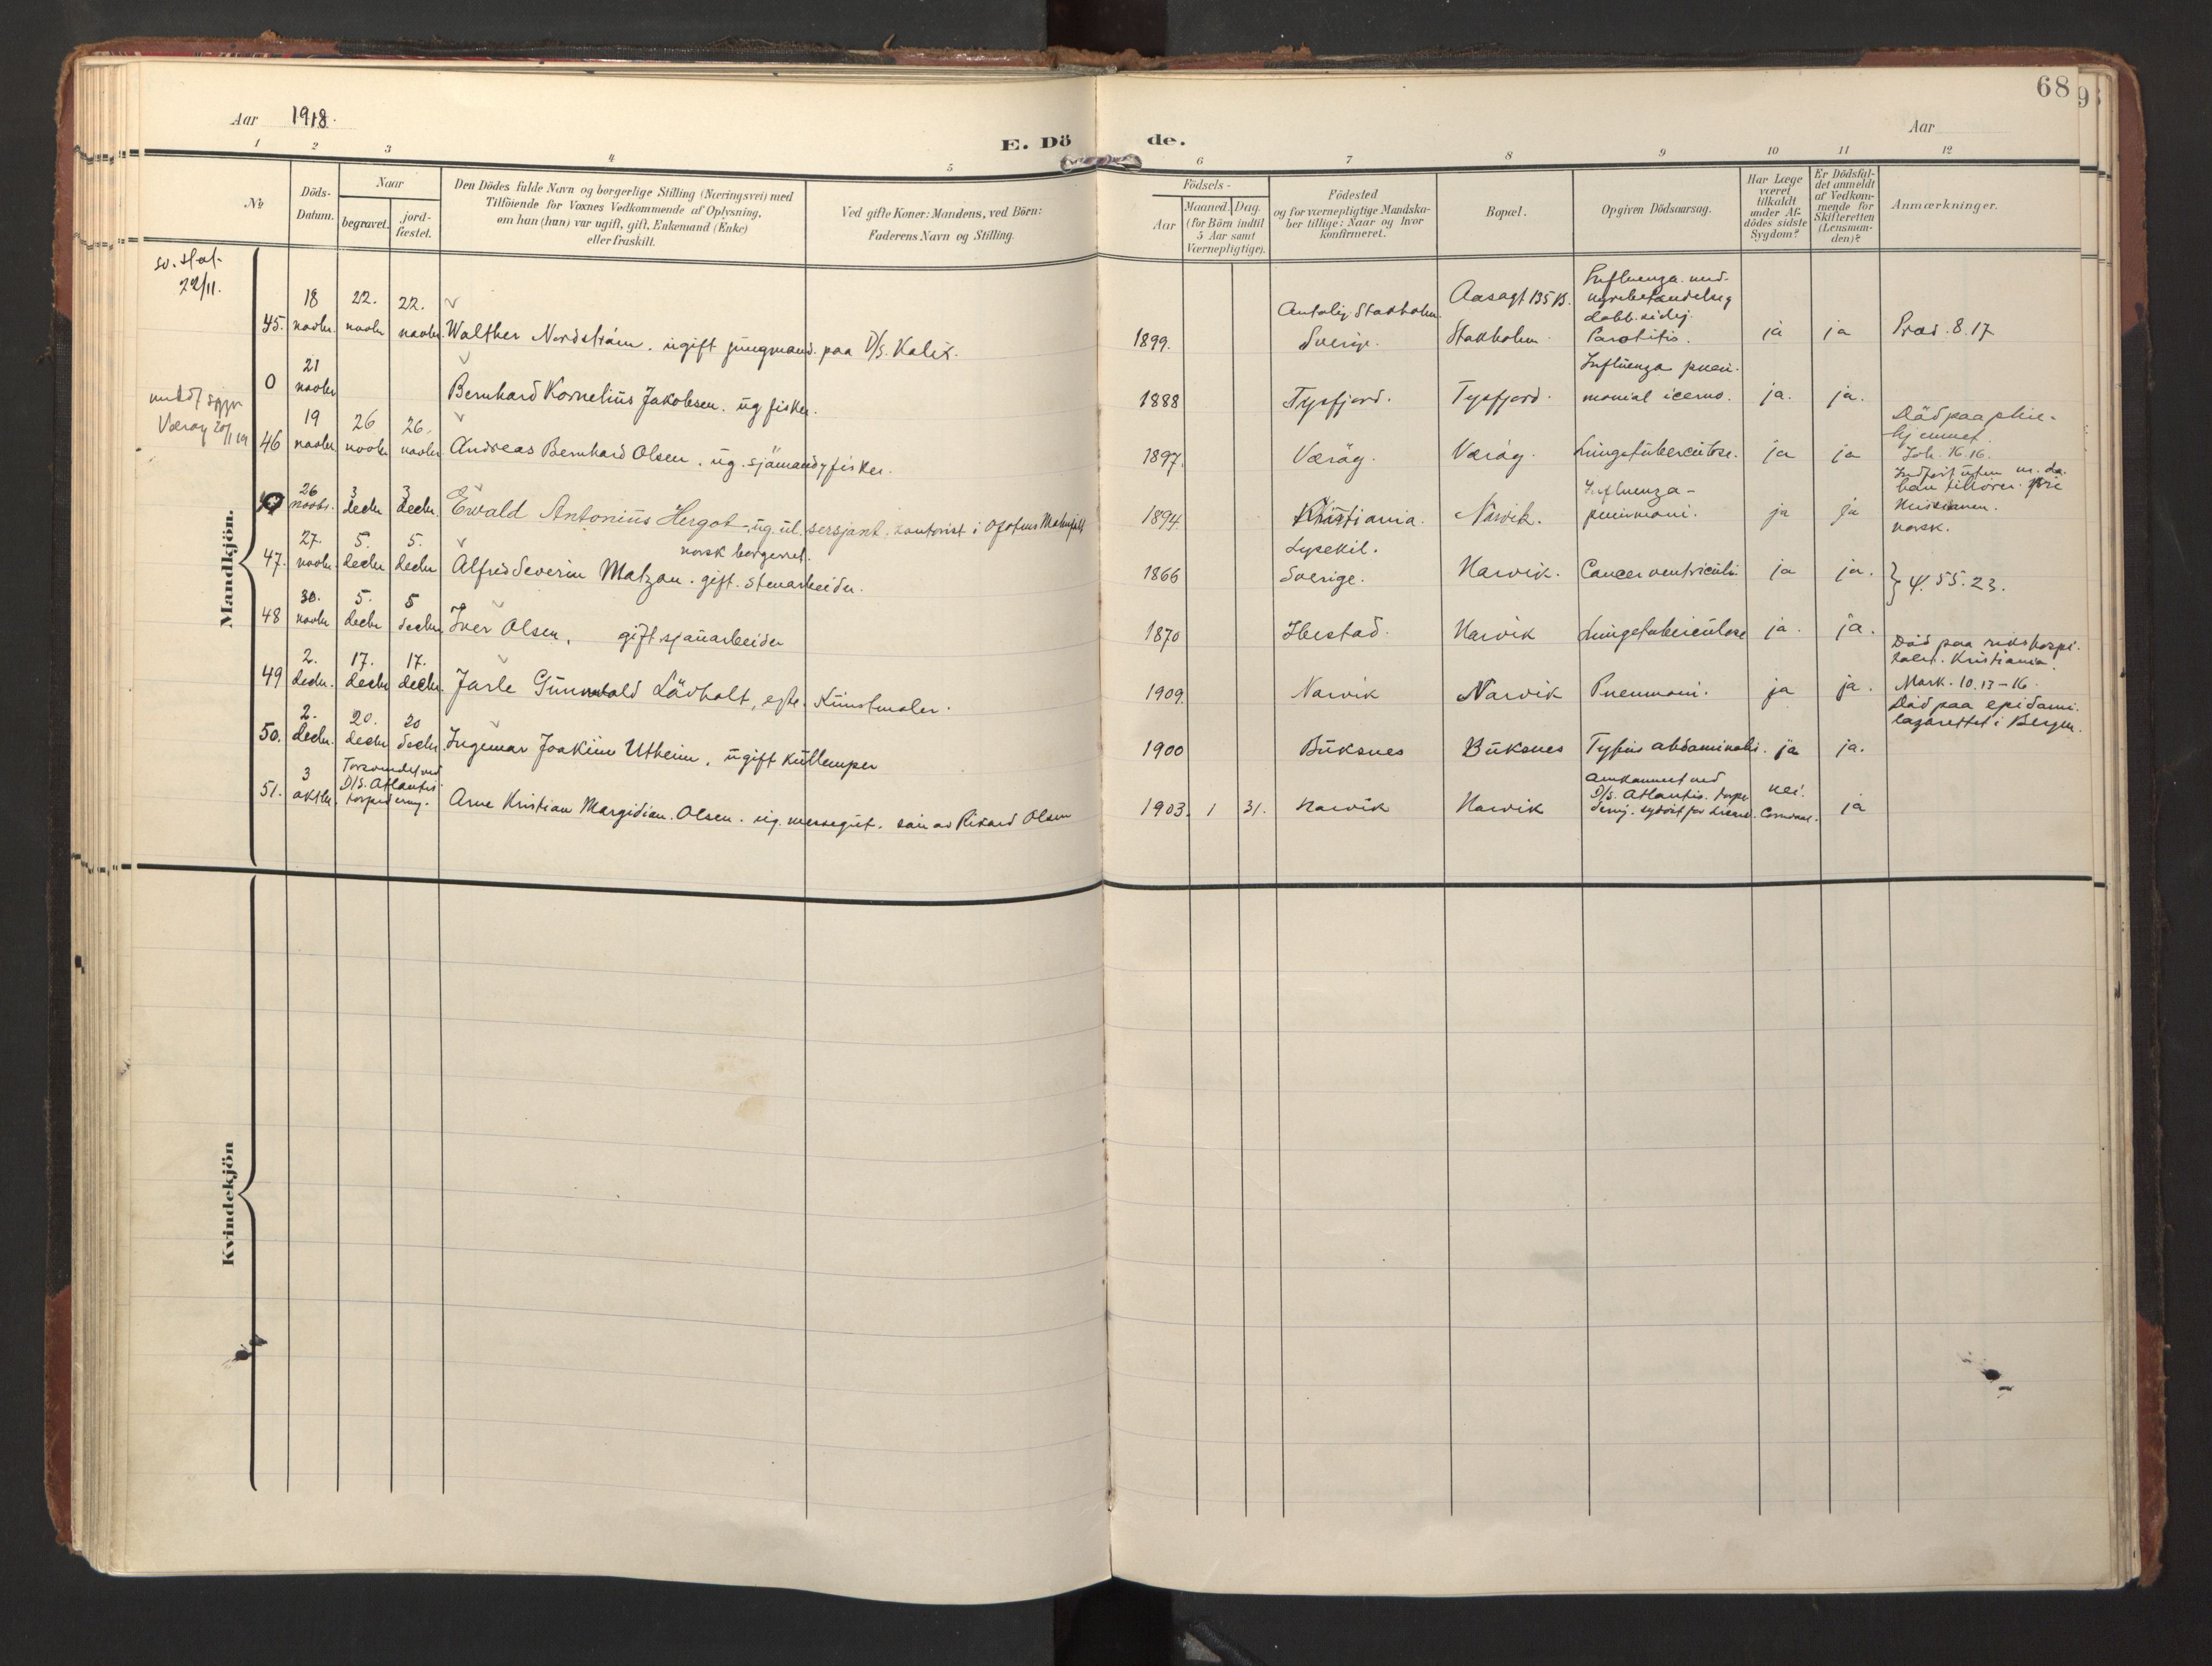 68
Aar 1918.
E. Döde.
Aar
1 2 3 4 5 6 7 8 9 10 11 12
№
Döds-
Datum.
Naar
begravet.
jord-
fæstet.
Den Dödes fulde Navn og borgerlige Stilling (Næringsvei) med
Tilföiende for Voxnes Vedkommende af Oplysning,
om han (hun) var ugift, gift, Enkemand (Enke)
eller fraskilt.
Ved gifte Koner: Mandens, ved Börn:
Faderens Navn og Stilling.
Födsels-
Aar
Maaned. Dag.
(for Börn indtil
5 Aar samt
Værnepligtige).
Födested
og for værnepligtige Mandska-
ber tillige: Naar og hvor
konfirmeret.
Bopæl.
Opgiven Dödsaarsag.
Har Læge
været
tilkaldt
under Af-
dödes sidste
Sygdom?
Er Dödsfal-
det anmeldt
af Vedkom-
mende for
Skifteretten
(Lensman-
den)?
Anmærkninger.
Mandkjön.
22/11.
45. 18 novbr. 22. novbr 22. novbr. Walther Nordström. ugift jungmand paa D/S. Kalix. 1899. Antalig Stokholm. Sverige. Aasögt 135 B. Stokholm. Influenza med.
dobb.sidig
Parotitis. ja ja Præd. 8.17
0 21 novbr Bernhard Kornelius Jakobsen. ug fisker. 1888 Tysfjord. Tysfjord. Influenza pneu-
ja. ja.
Værøy 20/1 19
46 19 novbr. 26 novbr 26. novbr. Andreas Bernhard Olsen. ug. sjömand, fisker. 1897. Værøy. Værøy. Lungetuberculose. ja ja Död paa pleie-
hjemmet.
Joh. 16.16.
26 novbr. 3 decbr. 3 decbr. Ewald Antonius Hergot - ug. ul. sersjant, kontorist i Ofotens Malmfelt 1894. Kristiania. Narvik. Influenza-
pneumoni. ja ja han tilhörer
norsk.
norsk borgerret.
47. 27. novbr. 5. decbr 5. decbr Alfred Severin Matzon. gift. stenarbeider. 1866 Lysekil.
Sverige. Narvik. Cancer ventriculi ja ja. } ψ. 55.23.
48 30. novbr 5. decbr 5 decbr. Iver Olsen, gift sjauarbeider 1870 Ibestad. Narvik Lungetuberculose ja. ja.
49 2. decbr. 17. decbr 17. decbr. Jarle Gunvald Lövholt, egte. Kunstmaler. 1909. Narvik Narvik Pneumoni. ja ja. Död paa rikshospi-
talet. Kristiania.
Mark. 10.13-16.
50. 2. decbr. 20. decbr 20 decbr. Ingemar Joakim Utheim, ugift kullemper 1900 Buksnes Buksnes Tyfus abdominalis. ja ja. Död paa epidemi-
lazarettet i Bergen.
51. 3 oktbr. Forsvundet ved
D/S. Atlantis
torpedering. Arne Kristian Margidian Olsen. ug. messegut. sön av Rikard Olsen 1903. 1 31. Narvik Narvik omkommet ved
D/S. Atlantis. torpe-
dering. sydöst for Lizard. Cornwal. nei. ja
Kvindekjön